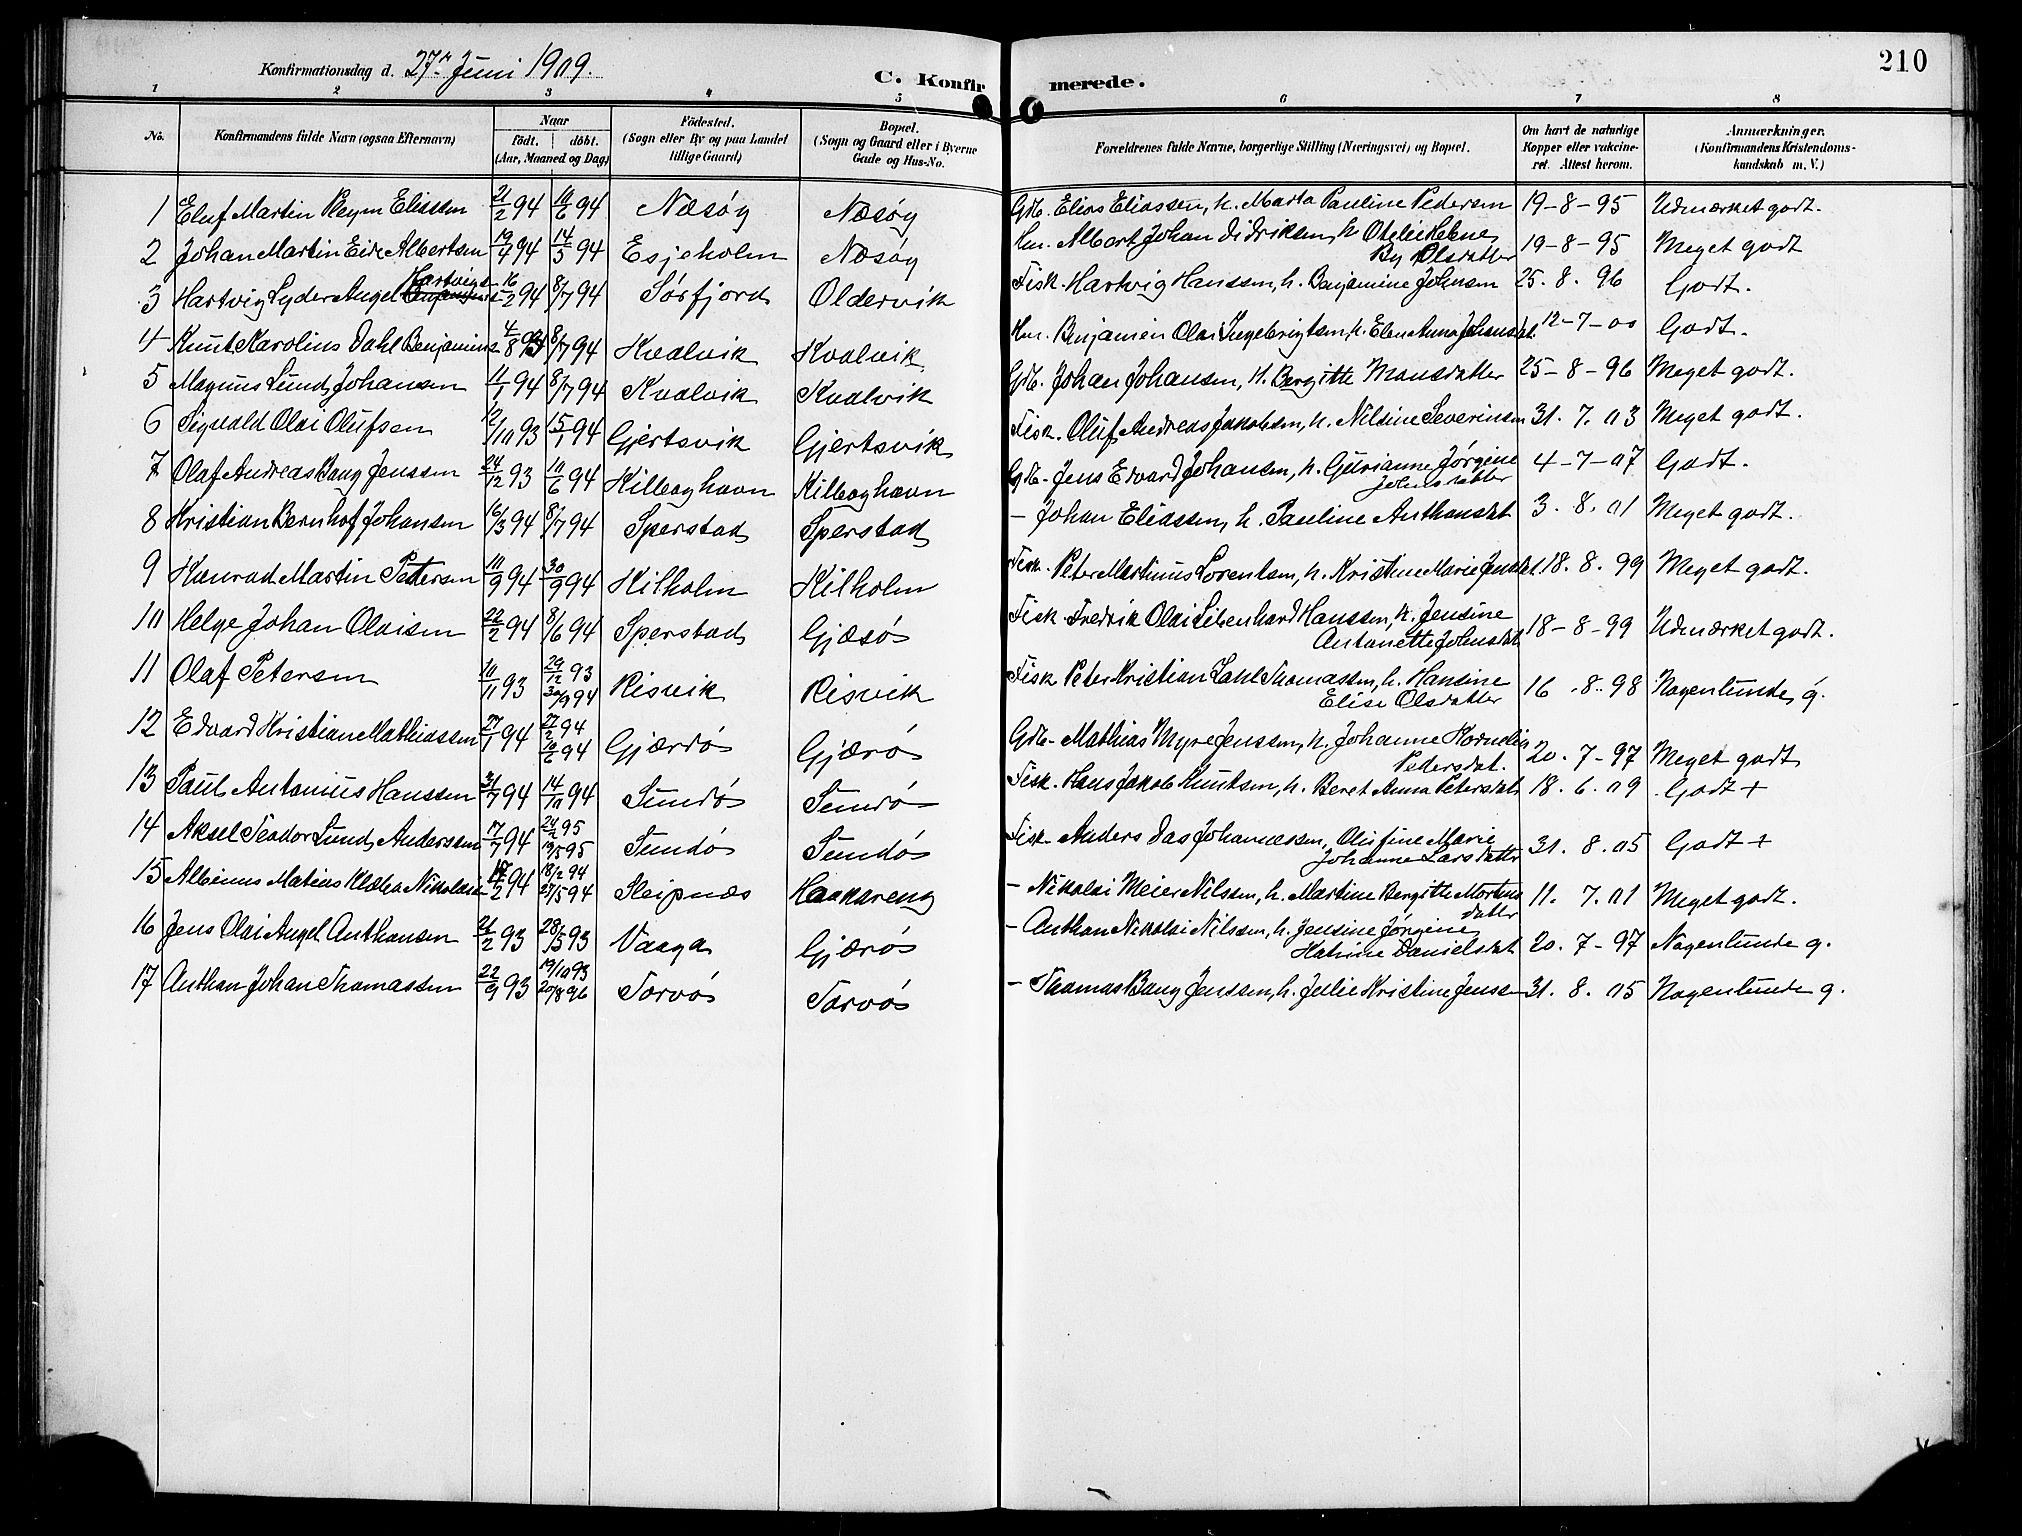 210
Konfirmationsdag d. 27de Juni 1909.
C. Konfirmerede.
1 2 3 4 5 6 7 8
No.
Konfirmandens fulde Navn (ogsaa Efternavn)
Naar
födt. döbt.
(Aar, Maaned og Dag)
Födested.
(Sogn eller By og paa Landet
tillige Gaard)
Bopæl.
(Sogn og Gaard eller i Byerne
Gade og Hus-No.
Forældrenes fulde Navne, borgerlige Stilling (Næringsvei) og Bopæl.
Om havt de naturlige
Kopper eller vakcine-
ret. Attest herom.
Anmærkninger.
(Konfirmandens Kristendoms-
kundskab m. V.)
1 Eluf Martin Pleym Eliassen 21/2 94 10/6 94 Næsøy Næsøy Gdb. Elias Eliassen, h. Marta Pauline Pedersen 19-8-95 Udmærket godt.
2 Johan Martin Eide Albertsen 19/4 94 14/5 94 Esjeholm Næsøy Hm. Albert Johan Didriksen, h. Otelie Helene
By Olsdatter 19-8-95 Meget godt
3 Hartvig Lyder Angel Hartvigs. 16/2 94 8/7 94 Sörfjord Oldervik Fisk. Hartvig Hanssen, h. Benjamine Johnsen 25.8.96 Godt.
4 Knut Karolius Dahl Benjamins. 4/8 93 8/7 94 Kvalvik Kvalvik Hm. Benjamin Olai Ingebrigtsen, h. Elen Anna Johansdat. 12-7-00 Godt.
5 Magnus Lund Johansen 11/1 94 8/7 94 Kvalvik Kvalvik Gdb. Johan Johansen, H. Bergitte Monsdatter 25-8-96 Meget godt.
6 Sigvald Olai Olufsen 12/10 93 15/1 94 Gjertsvik Gjertsvik Fisk. Oluf Andreas Jakobsen, h. Nilsine Severinsen 31.7.03 Meget godt.
7 Olaf Andreas Bang Jenssen 24/12 93 10/6 94 Kilboghavn Kilboghavn Gdb. Jens Edvard Johansen, h. Gurianne Jörgine
Johnsdatter 4-7-07 Godt.
8 Kristian Bernhof Johansen 16/3 94 8/7 94 Sperstad Sperstad - Johan Eliassen, h. Pauline Anthonsdat 3.8.01 Meget godt.
9 Konrad Martin Pettersen 10/9 94 30/9 94 Kilholm Kilholm Fisk. Peter Martinus Lorentsen, h. Kristine Marie Jensdat. 18.8.99 Meget godt.
10 Helge Johan Olaisen 22/2 94 8/6 94 Sperstad Gjæsö Fisk. Fredrik Olai Libenhard Hanssen, h. Jensine
Antonette Johnsdat 18-8-99 Udmærket godt.
11 Olaf Petersen 10/11 93 29/12 93
30/9 94 Risvik Risvik Fisk Peter Kristian Dahl Thomassen, h. Hansine
Elise Olsdatter 16.8.98 Nogenlunde g.
12 Edvard Kristian Mathiassen 27/1 94 27/2 94
10/6 94 Gjærdö Gjærö Gdb. Mathias Myre Jenssen, h. Johanne Kornelia
Pedersdat. 20.7-97 Meget godt
13 Paul Antonius Hanssen 31/7 94 14/10 94 Sundö Sundö Fisk. Hans Jakob Knutsen, h. Beret Anna Petersdat 18.6.09 Godt +
14 Aksel Teodor Lund Anderssen 17/7 94 24/2 95
19/5 95 Sundö Sundö Fisk. Anders Das Johannessen, Olufine Marie
Johanne Larsdatter 31.8.05 Godt +
15 Albinus Matius Klæbo Nikolaisen 17/2 94 18/2 94
27/5 94 Sleipnæs Haakareng - Nikolai Meier Nilssen, h. Martine Bergitte Mortens
datter 11.7.01 Meget godt.
16 Jens Olai Angel Anthonsen 21/2 93 28/5 93 Vaaga Gjærö - Anthon Nikolai Nilssen, h. Jensine Jörgine
Katrine Danielsdat 20.7-97 Nogenlunde g.
17 Anthon Johan Thomassen 22/9 93 19/10 93
20/8 96 Torvö Torvö - Thomas Bang Jenssen, h. Julie Kristine Jenssen 31.8.05 Nogenlunde g.